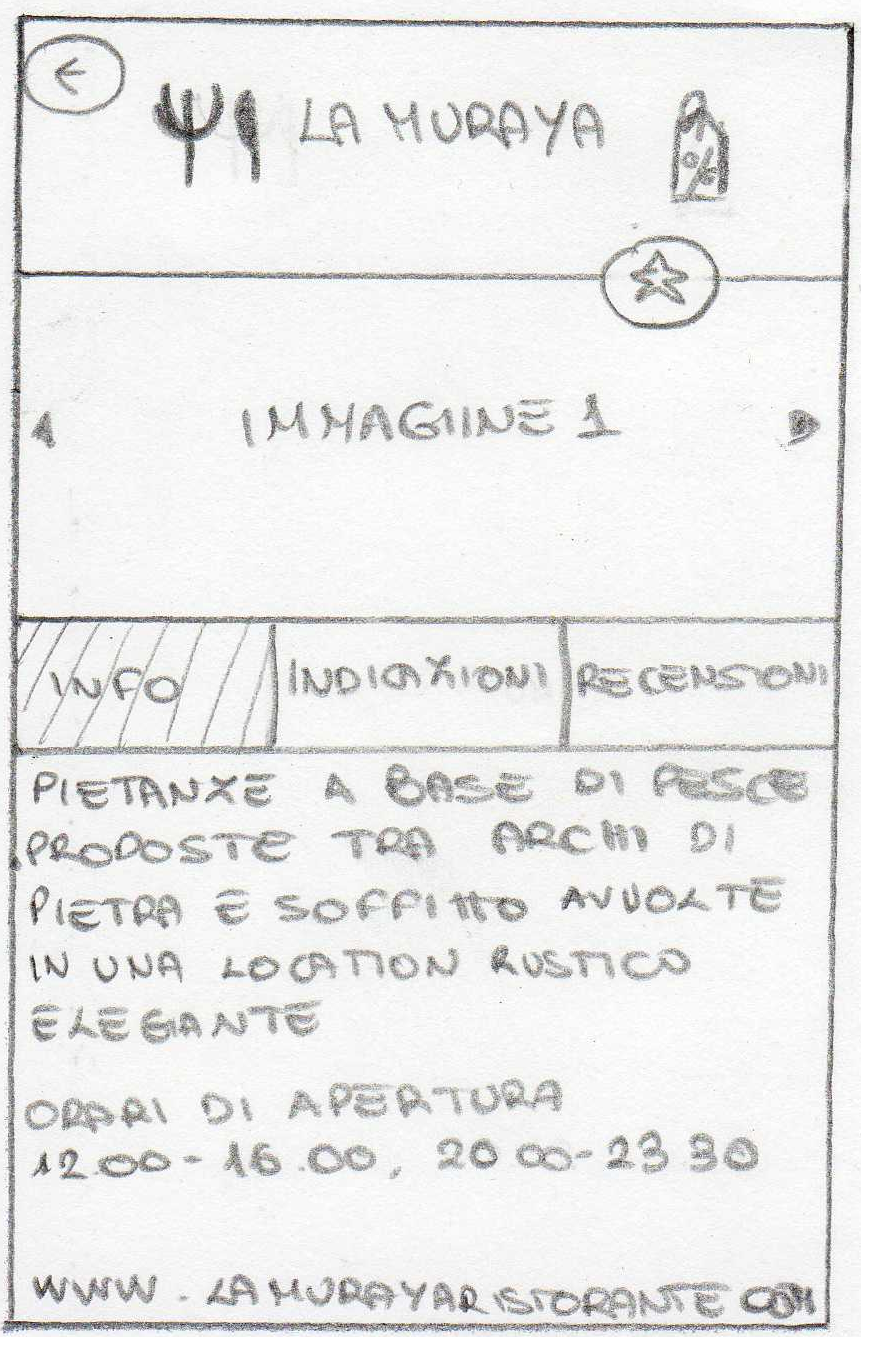 LA MURAYA
%
IMMAGIINE 1
INFO
INDICAZIONI
RECENSIONI
PIETANZE A BASE DI PESCE
PROPOSTE TRA ARCHI DI
PIETRA E SOFFITTO AVVOLTE
IN UNA LOCATION RUSTICO
ELEGANTE
ORARI DI APERTURA
12.00 - 16.00, 20 00 - 23 30
WWW.LAMURAYARISTORANTE COM